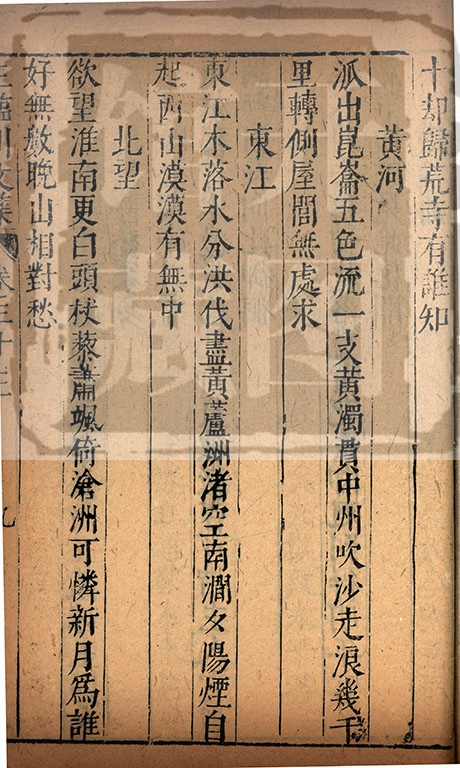 十却歸荒寺有誰知
黃河
派出崑崙五色流一支黃濁貫中州吹沙走浪幾千
里轉側屋閭無處求
東江
東江木落水分洪伐盡黃蘆洲渚空南澗夕陽煙自
起西山漠漠有無中
北望
欲望淮南更白頭杖藜蕭颯倚滄洲可憐新月為誰
好無數晚山相對愁
王臨川文集 卷三十三 九